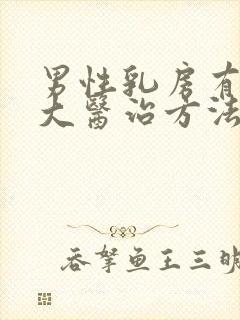 男性乳房有
大醫治方法
吞拏鱼王三明